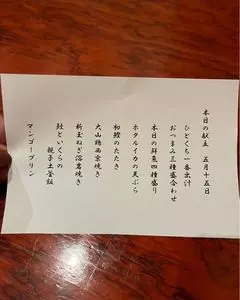 本日の献立　五月十五日
ひとくち一番出汁
おつまみ三種盛合わせ
本日の鮮魚四種盛り
ホタルイカの天ぷら
初鰹のたたき
大山鶏西京焼き
新玉ねぎ溶岩焼き
鮭といくらの
親子土釜飯
マンゴープリン